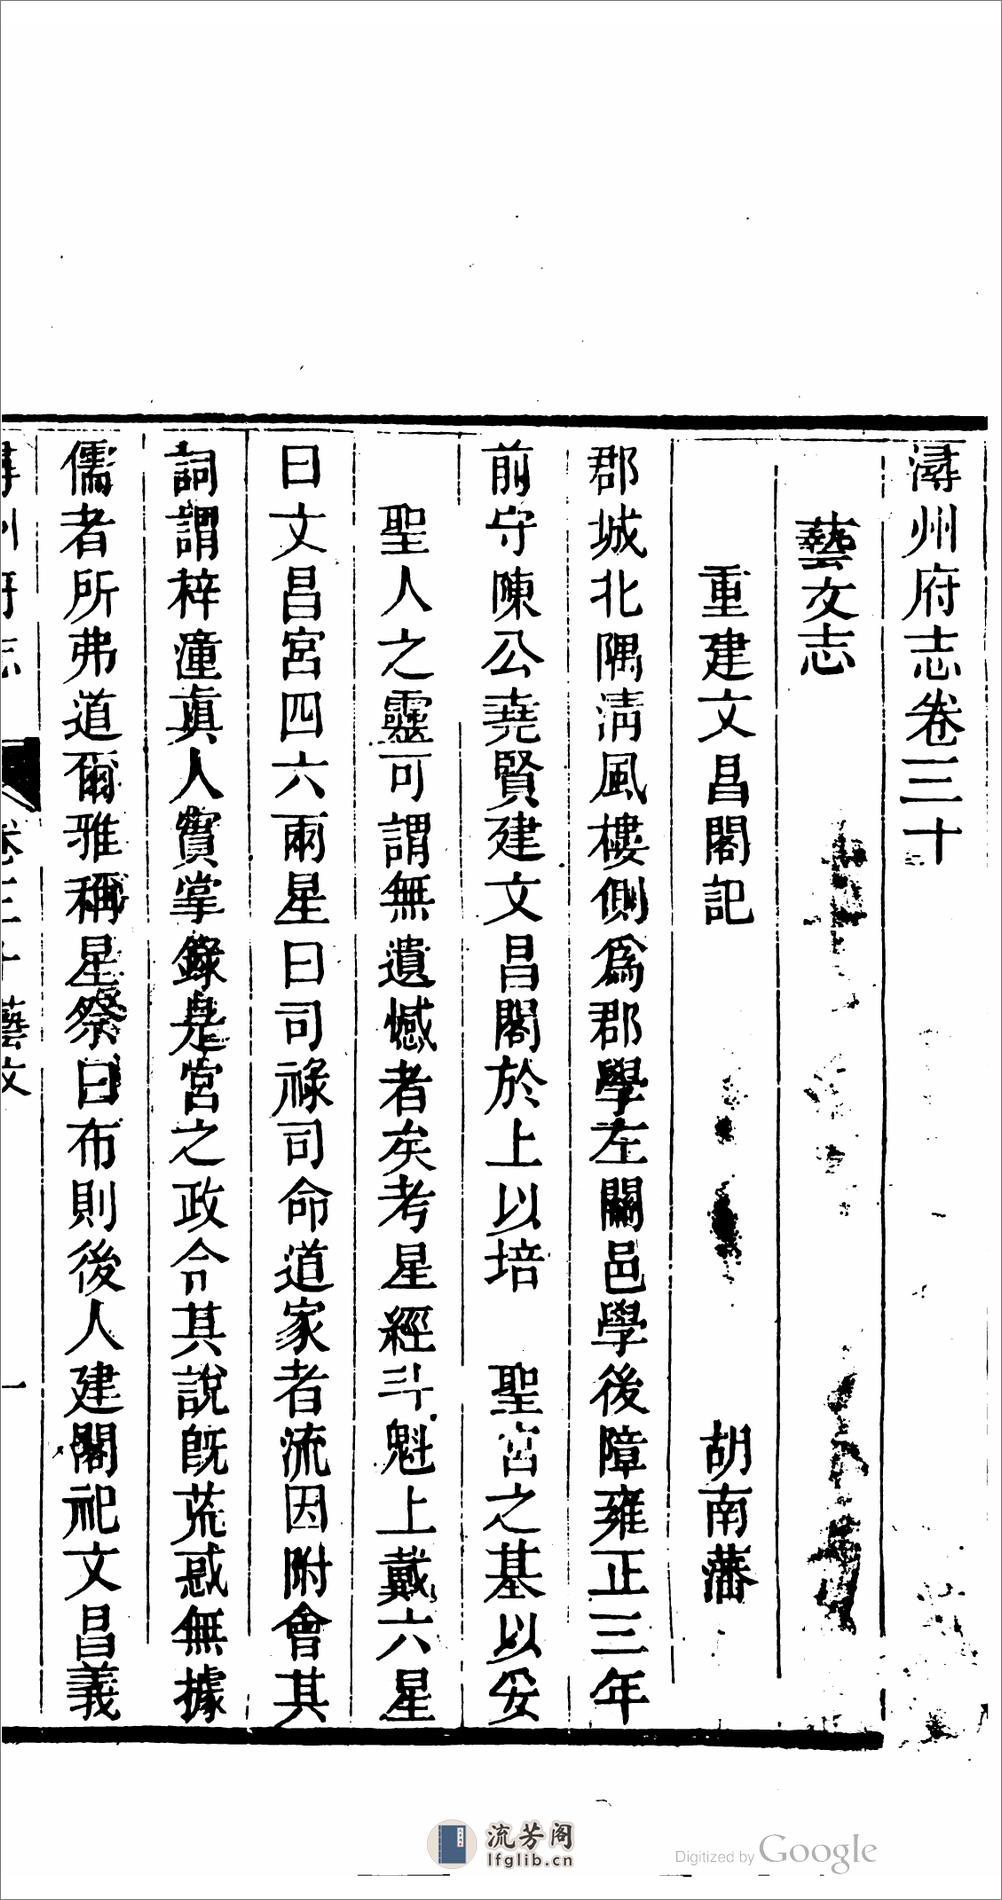 潯州府志卷三十
藝文志
重建文昌閣記 胡南藩
郡城北隅淸風樓側爲郡學左關邑學後障雍正三年
前守陳公堯賢建文昌閣於上以培 聖宮之基以妥
聖人之靈可謂無遺憾者矣考星經斗魁上戴六星
曰文昌宮四六兩星曰司祿司命道家者流因附會其
詞謂梓潼眞人實掌錄是宮之政令其說旣荒惑無據
儒者所弗道爾雅稱星祭曰布則後人建閣祀文昌義
潯州府志 卷三十藝文 一
流芳阁
lfglib.cn
Digitized by Google